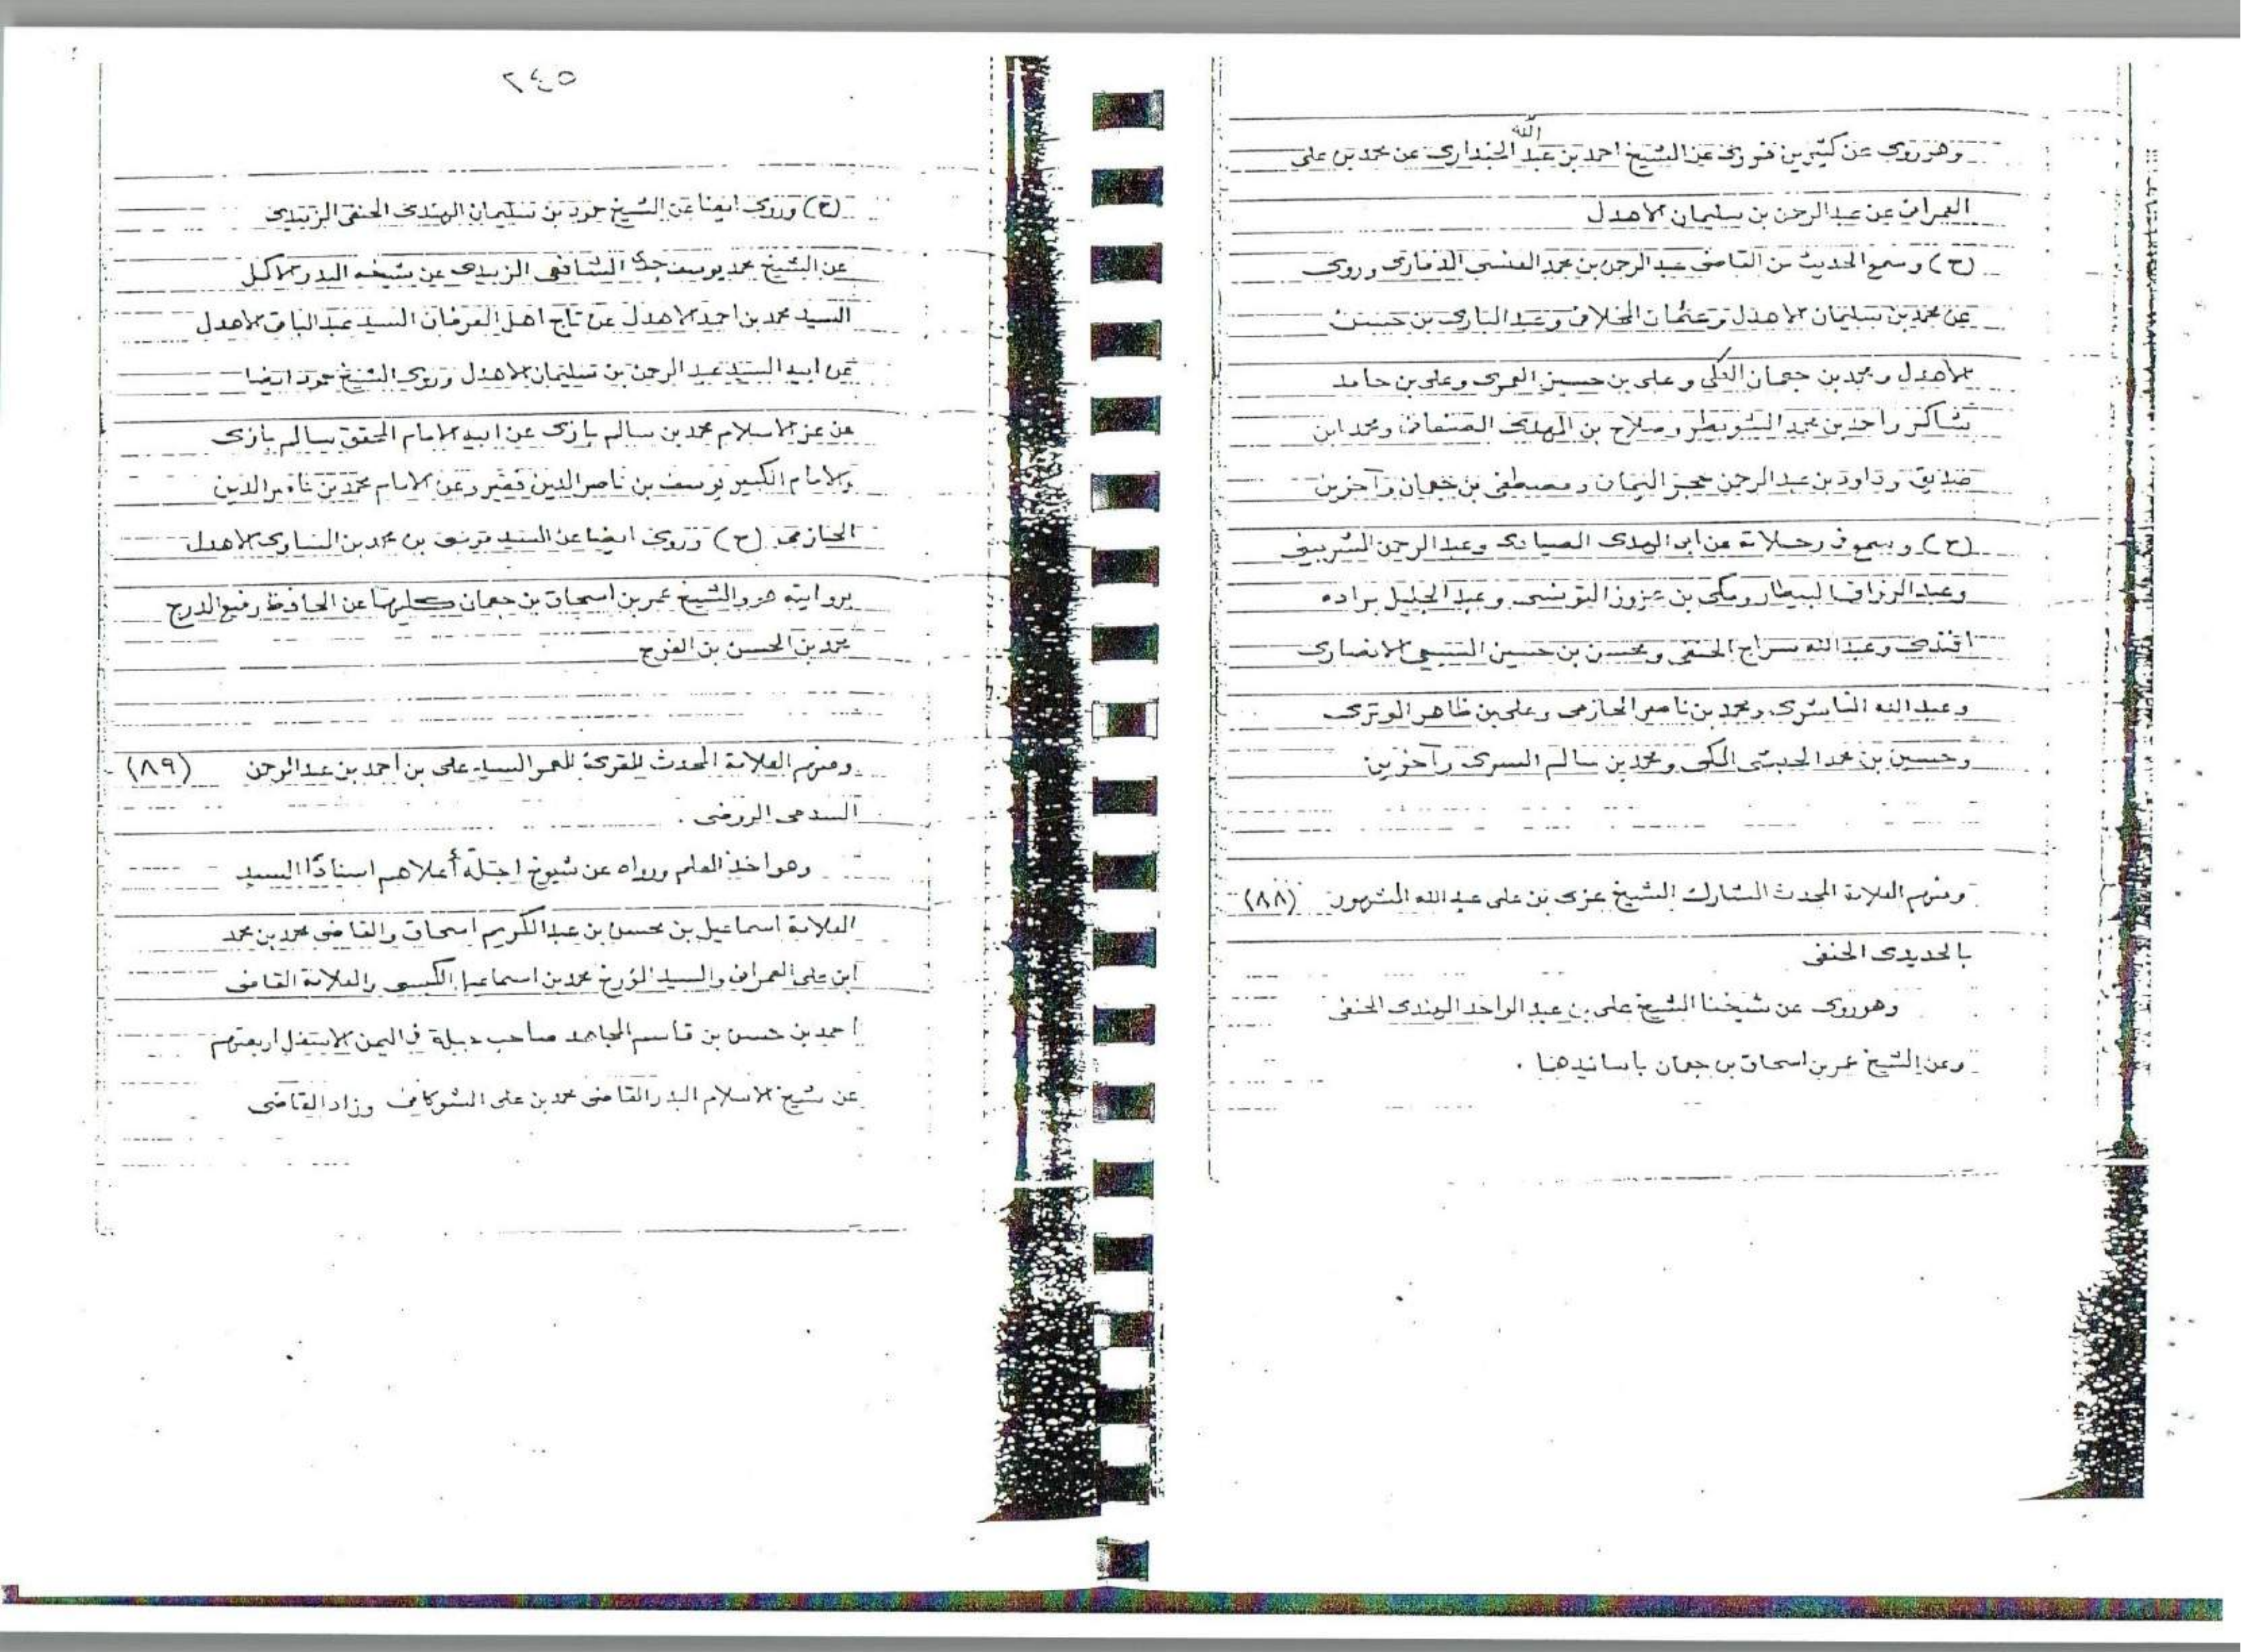 وهو روى عن كثيرين فروى عن الشيخ احمد بن عبد الله الجندارى عن محمد بن على
العمرانى عن عبد الرحمن بن سليمان الاهدل
(ح) وسمع الحديث من القاضى عبد الرحمن بن محمد العنسى الذمارى وروى
عن محمد بن سليمان الاهدل وعثمان الخلافى وعبد البارى بن حسين
الاهدل ومحمد بن جعمان العكى وعلى بن حسين العمرى وعلى بن حامد
شاكر واحمد بن محمد الشويطر وصلاح بن المهدى الصنعانى ومحمد ابن
صديق وداود بن عبد الرحمن حجر اليمانى ومصطفى بن جعمان وآخرين
(ح) وسمع فى رحلاته عن ابى الهدى الصيادى وعبد الرحمن الشربينى
وعبد الرزاق البيطار ومكى بن عزوز التونسى وعبد الجليل براده
افندى وعبد الله سراج الحنفى ومحسن بن حسين السبيعى الانصارى
وعبد الله الناشرى ومحمد بن ناصر الحازمى وعلى بن ظاهر الوترى
وحسين بن محمد الحبشى المكى ومحمد بن سالم السرى وآخرين
ومنهم العلامة المحدث المشارك الشيخ عزى بن على عبد الله المشهور (٨٨)
بالحديدى الحنفى
وهو روى عن شيخنا الشيخ على بن عبد الواحد الهندى الحنفى
وعن الشيخ عمر بن اسحاق بن جعمان بأسانيدهما .
٢٤٥
(ح) وروى ايضا عن الشيخ حمود بن سليمان الهندى الحنفى الزبيدى
عن الشيخ محمد يوسف جدى الشافعى الزبيدى عن شيخه البدر الاكمل
السيد محمد بن احمد الاهدل عن تاج اهل العرفان السيد عبد الباقى الاهدل
عن ابيه السيد عبد الرحمن بن سليمان الاهدل وروى الشيخ حمود ايضا
عن عز الاسلام محمد بن سالم بازى عن ابيه الامام المحقق سالم بازى
والامام الكبير يوسف بن ناصر الدين فقير وعن الامام محمد بن ناصر الدين
الحازمى (ح) وروى ايضا عن السيد موسى بن محمد بن المساوى الاهدل
بروايته هو والشيخ عمر بن اسحاق بن جعمان كليهما عن الحافظ رفيع الدرج
محمد بن الحسن بن الفرج
ومنهم العلامة المحدث المقرئ المعمر السيد على بن احمد بن عبد الرحمن (٨٩)
السدمى الروضى .
وهو اخذ العلم ورواه عن شيوخ اجلّة أعلاهم اسنادًا السيد
العلامة اسماعيل بن محسن بن عبد الكريم اسحاق والقاضى محمد بن محمد
ابن على العمرانى والسيد المؤرخ محمد بن اسماعيل الكبسى والعلامة القاضى
احمد بن حسن بن قاسم المجاهد صاحب جبلة فى اليمن الاسفل اربعتهم
عن شيخ الاسلام البدر القاضى محمد بن على الشوكانى وزاد القاضى